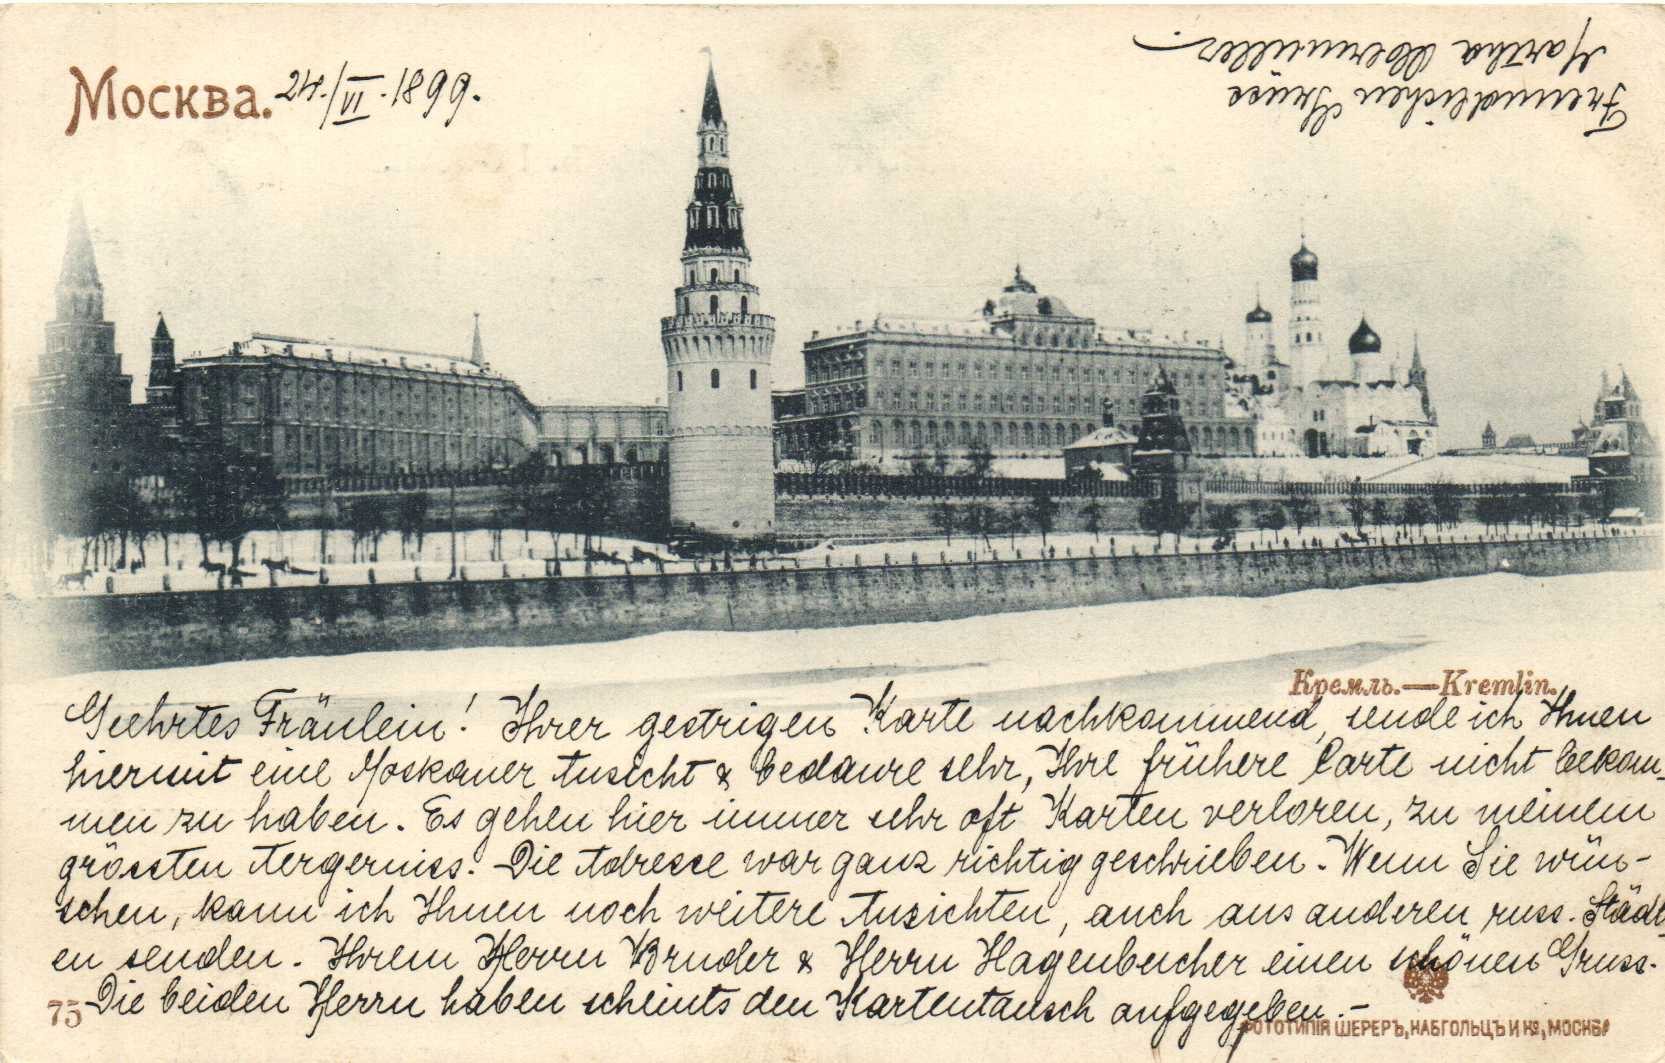 Москва.
24./VI.1899.
Freundlichen Grüss
Martha
Кремль.—Kremlin.
Geehrtes Fräulein! Ihrer gestrigen Karte nachkommend, sende ich Ihnen
hiermit eine Moskauer Ansicht & bedaure sehr, Ihre frühere Carte nicht bekom-
men zu haben. Es gehen hier immer sehr oft Karten verloren, zu meinem
grössten Aergerniss. Die Adresse war ganz richtig geschrieben. Wenn Sie wün-
schen, kann ich Ihnen noch weitere Ansichten, auch aus anderen russ. Städt-
en senden. Ihrem Herrn Bruder & Herrn Hagenbucher einen schönen Gruss.
Die beiden Herrn haben scheints den Kartentausch aufgegeben.–
75
ФОТОТИПІЯ ШЕРЕРЪ, НАБГОЛЬЦЪ И Ко, МОСКВА